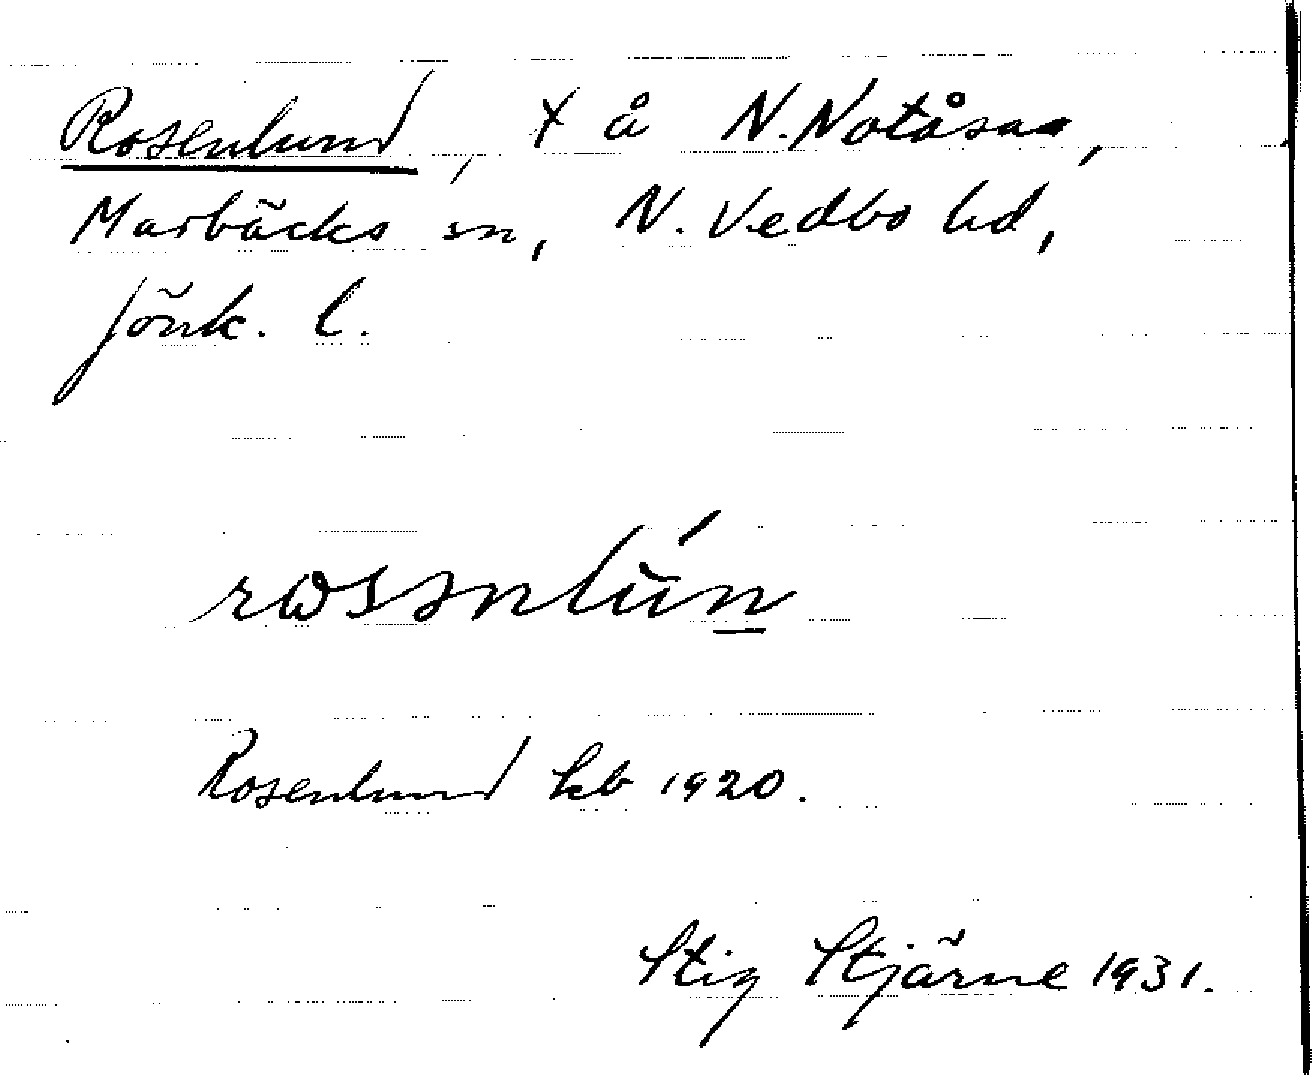 Rosenlund, † å N. Notåsa,
Marbäcks sn, N. Vedbo hd,
Jönk. l.
rωsənlún
Rosenlund kb 1920.
Stig Stjärne 1931.